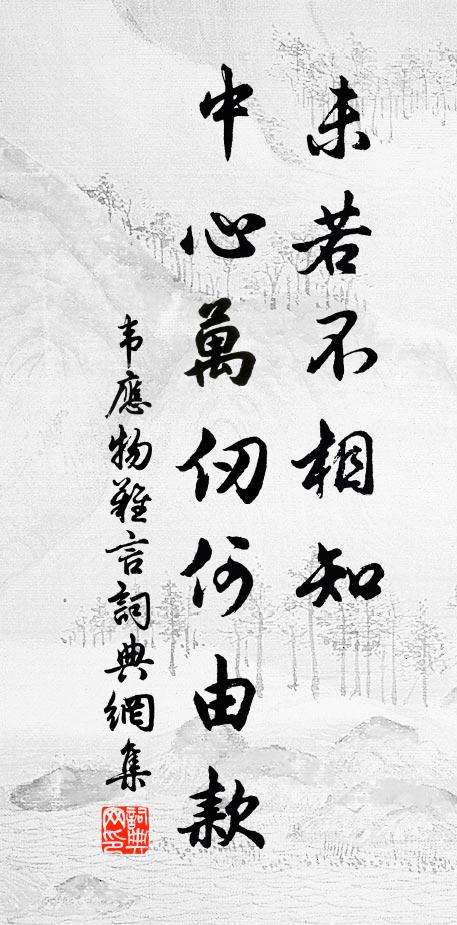 未若不相知
中心萬仞何由款
韦應物難言詞典網集
詞典网印